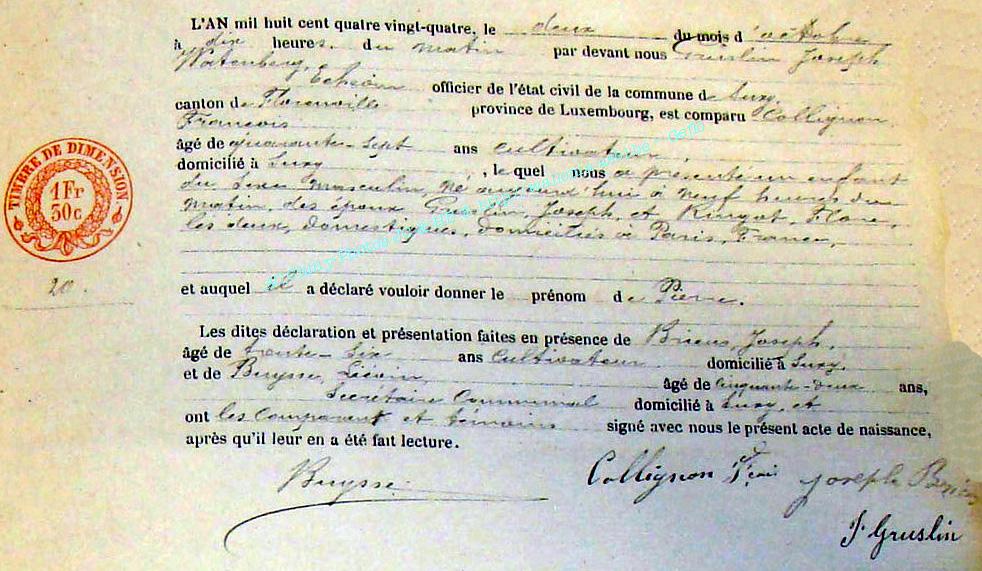 L'AN mil huit cent quatre vingt-quatre, le deux du mois d'octobre
à dix heures du matin par devant nous Gruslin Joseph
Watenberg, Echevin officier de l'état civil de la commune de Suxy,
canton de Florenville province de Luxembourg, est comparu Collignon,
Francois
âgé de quarante-sept ans cultivateur,
domicilié à Suxy, le quel nous a présenté un enfant
du sexe masculin, né aujourd'hui à neuf heures du
matin, des époux Gruslin, Joseph, et
les deux, domestiques, domiciliés à Paris, France,
et auquel il a déclaré vouloir donner le prénom de Pierre.
Les dites déclaration et présentation faites en présence de Joseph,
âgé de trente-six ans cultivateur domicilié à Suxy,
et de Buysse, Liévin, âgé de cinquante-deux ans,
Secrétaire Communal domicilié à Suxy, et
ont les comparant et témoins signé avec nous le présent acte de naissance,
après qu'il leur en a été fait lecture.
Buysse
Collignon
Joseph
J. Gruslin
TIMBRE DE DIMENSION
1 Fr
30 c
20.